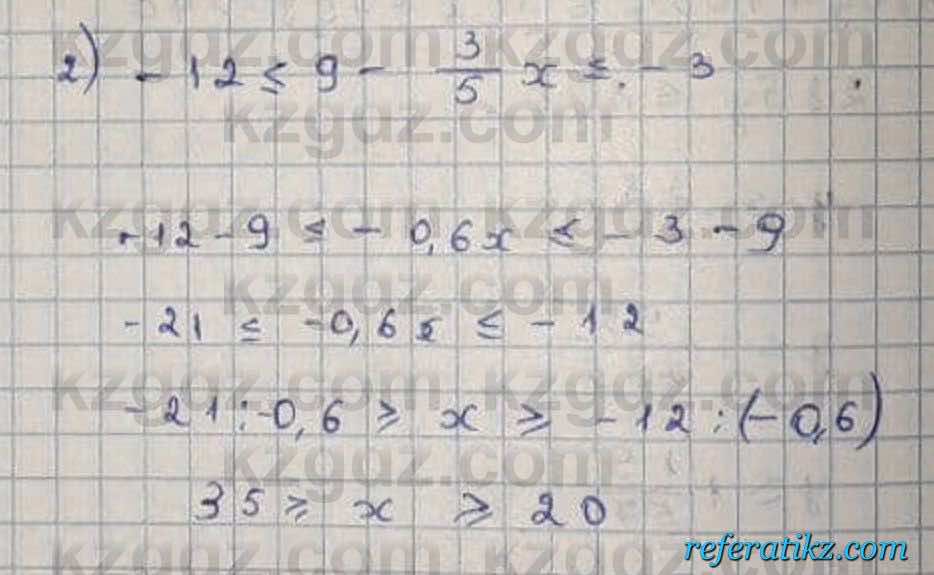 kzgdz.com kzgdz.com
2) -12 ≤ 9 - 3/5 x ≤ -3
kzgdz.com
kzgdz.com kzgdz.com
-12-9 ≤ -0,6x ≤ -3-9
kzgdz.com
-21 ≤ -0,6x ≤ -12
kzgdz.com kzgdz.com
-21:-0,6 ≥ x ≥ -12:(-0,6)
kzgdz.com
35 ≥ x ≥ 20
kzgdz.com kzgdz.com
referatikz.com